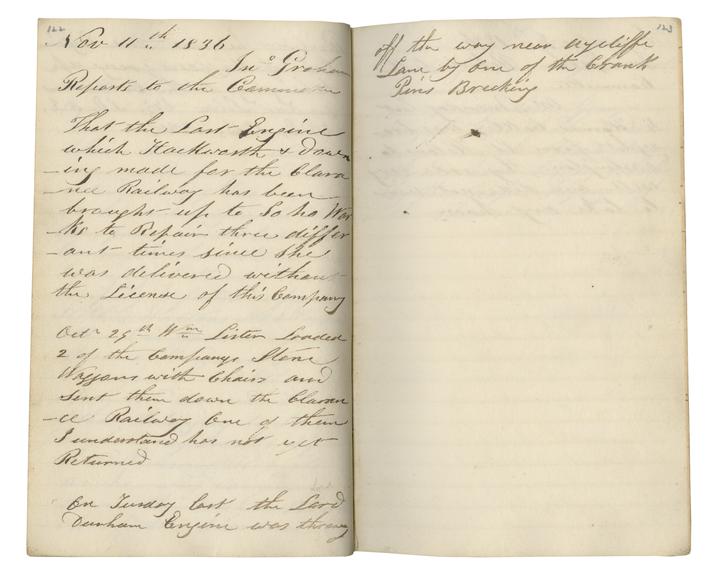 122
Nov 11th 1836
Jno Graham
Reports to the Committee
That the Last Engine
which Hackworth & Down
-ing made for the Clara
-nce Railway has been
brought up to Soho Wor
-ks to Repair three differ
-ant times since she
was delivered without
the License of this Company
Octr 29th Wm Lister Loaded
2 of the Companys Stone
Waggons with Chairs and
Sent them down the Claran
-ce Railway One of them
I understand has not yet
Returned
On Tusday last the Lord
Durham Engine was throwng
123
off the way near Aycliffe
Lane by One of the Crank
Pins Breeking